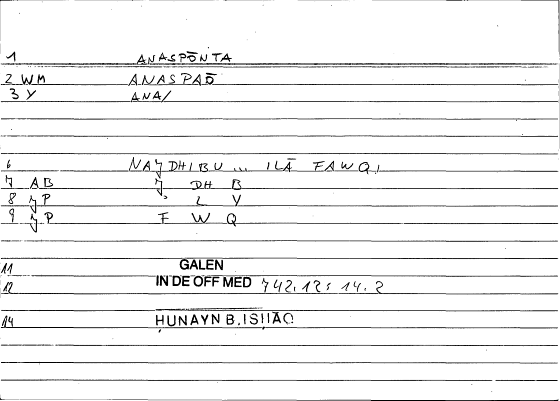 1 ANASPŌNTA
2 WM ANASPAŌ
3 Y ANA/
6 NAJDHIBU ... ILĀ FAWQI
7 AB J DH B
8 JP ʾ L Y
9 JP F W Q
11 GALEN
12 IN DE OFF MED 742.12: 14.2
14 ḤUNAYN B. ISḤĀQ